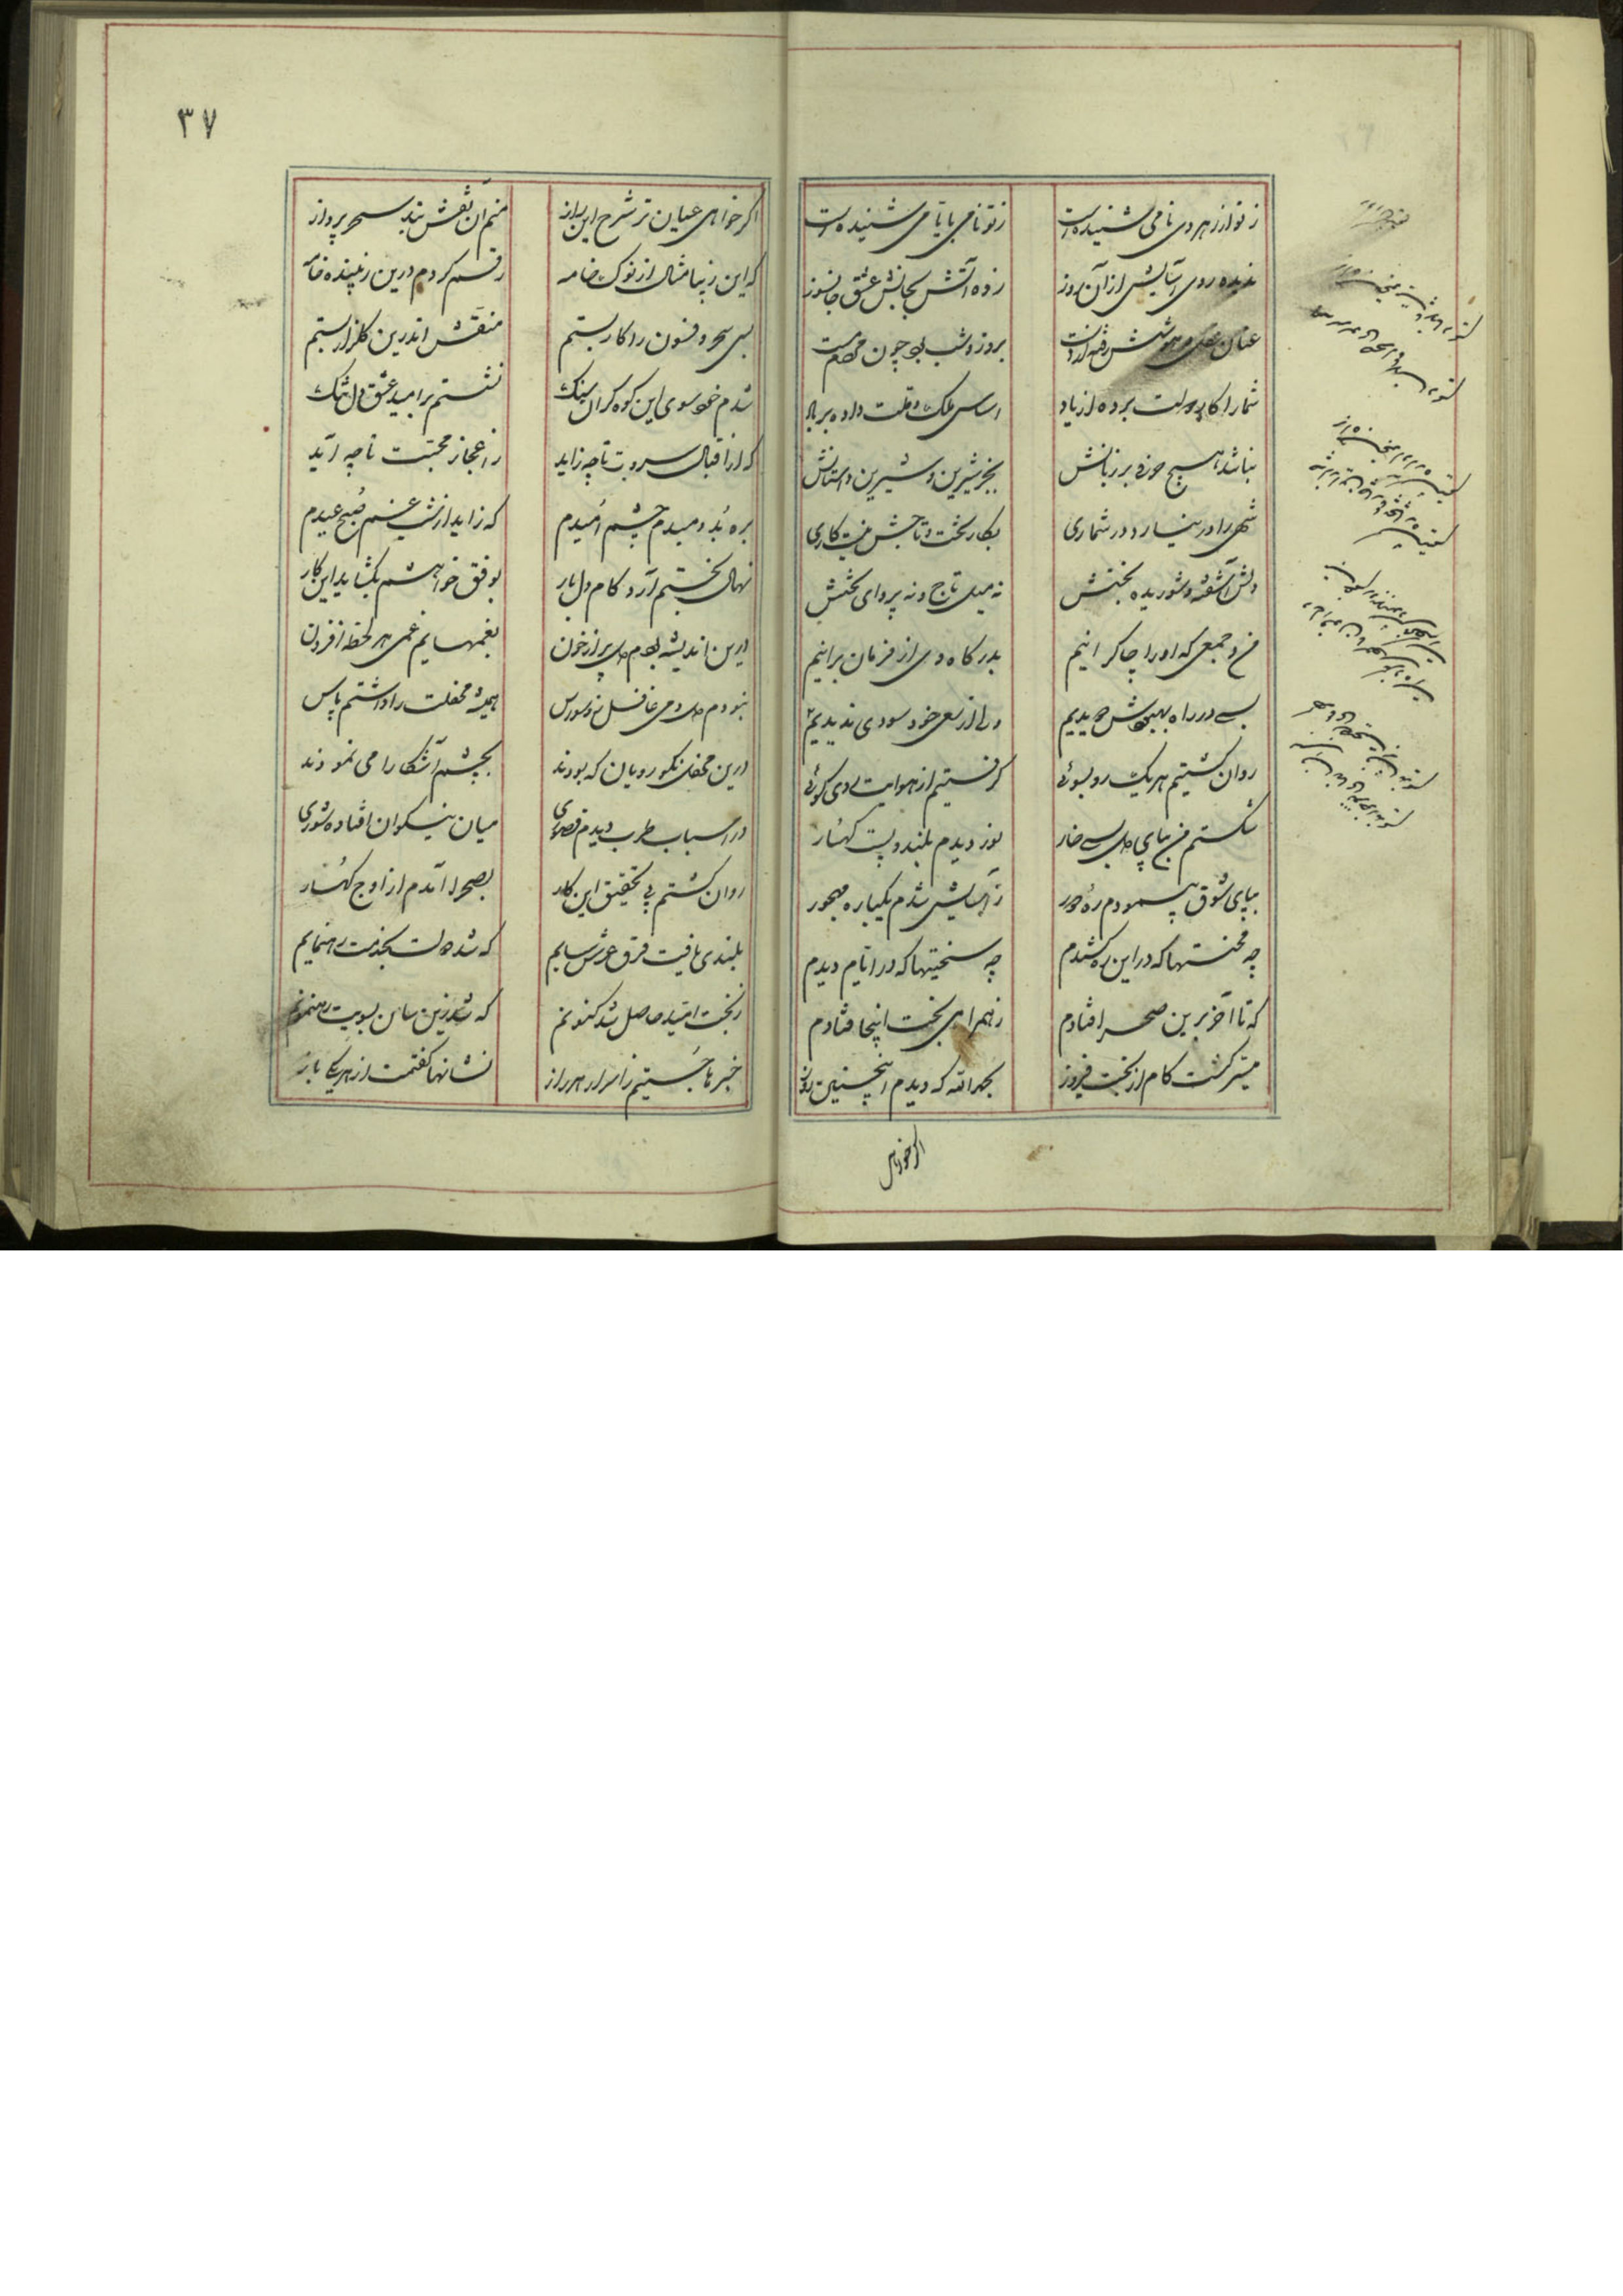 ز تو از هر دری نامی شنیده است
ز تو نامی بایامی شنیده است
ندیده روی آسایش از آن روز
زده آتش بجانش عشق جانسوز
عنان عقل و هوشش رفته از دست
بروز و شب بود چون مردم مست
شمار کار دولت برده از یاد
اساس ملک و ملت داده بر باد
نباشد هیچ حرفی بر زبانش
بجز شیرین و شیرین داستانش
شهی را در نیارد در شماری
بکار تخت و تاجش نیست کاری
دلش آشفته و شوریده بختش
نه میل تاج و نه پروای تختش
من و جمعی که او را چاکرانیم
بدرگاه وی از فرمان برانیم
بسی در راه بیهوش دویدیم
ولی از سعی خود سودی ندیدیم
روان گشتیم هر یک رو بسوئی
گرفتیم از هوایت راه کوئی
شکستم من بپای دل بسی خار
نوردیدم بلند و پست کهسار
بپای شوق پیمودم ره دور
ز آسایش شدم یکباره مهجور
چه محنتها که در این ره کشیدم
چه سختیها که در ایام دیدم
که تا آخر برین صحرا فتادم
ز همراهی بخت اینجا فتادم
میسر گشت کام از بخت فیروز
بحمدالله که دیدم اینچنین روز
اگر خواهی
۳۷
اگر خواهی عیان تر شرح این راز
منم آن نقش بند سحر پرداز
که این زیبا مثال از نوک خامه
رقم کردم درین زیبنده نامه
بسی سحر و فسون را کار بستم
منقش اندرین گلزار بستم
شدم خود سوی این کوه گران سنگ
نشستم بر امید عشق دل تنگ
که از اقبال سرورت تا چه زاید
ز اعجاز محبت تا چه آید
بره بد دمبدم چشم امیدم
که زاید از شب غم صبح عیدم
نهال بختم آرد کام دل بار
بوفق خواهشم بگشاید این کار
درین اندیشه بودم دل پر از خون
بغمهایم غمی هر لحظه افزون
نبودم دمی غافل ز وسواس
همیشه محفلت را داشتم پاس
درین محفل نکورویان که بودند
بچشم آشکارا می نمودند
در اسباب طرب دیدم قصوری
میان نیکوان افتاده شوری
روان گشتم پی تحقیق این کار
بصحرا آمدم از اوج کهسار
بلندی یافت فرق عرش سایم
که شد دولت بخدمت رهنمایم
ز بخت امید حاصل شد کنونم
که شد زین سان بسویت رهنمونم
خبرها جستیم ز اسرار هر راز
نشانها گفتمت از هر یکی باز